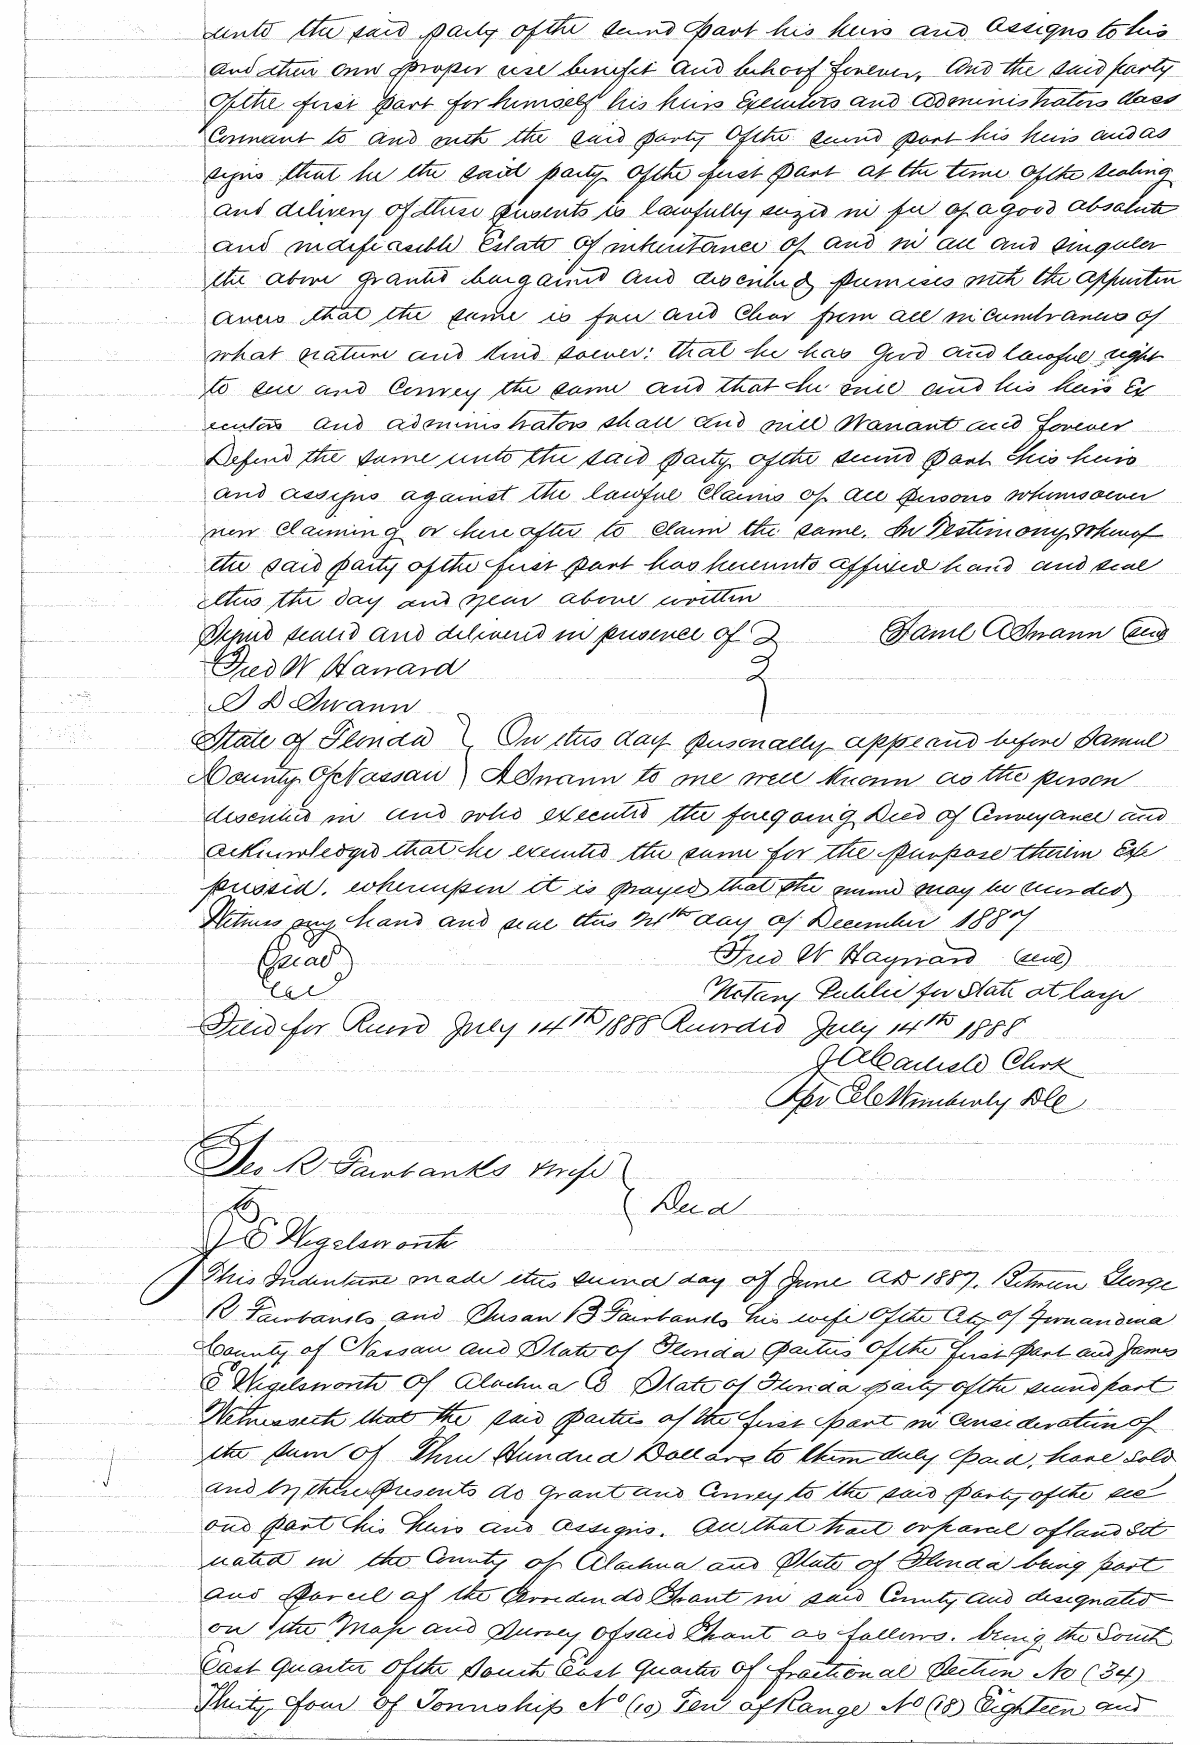 unto the said party of the second part his heirs and assigns to his
and their own proper use benefit and behoof forever. And the said party
of the first part for himself his heirs Executors and administrators does
Covenant to and with the said party of the second part his heirs and as
signs that he the said party of the first part at the time of the sealing
and delivery of these presents is lawfully seized in fee of a good absolute
and indefeasible Estate of inheritance of and in all and singular
the above granted bargained and described premises with the appurten
ances that the same is free and Clear from all incumbrances of
what nature and kind soever: that he has Good and lawful right
to sell and Convey the same and that he will and his heirs Ex
ecutors and administrators shall and will Warrant and forever
Defend the same unto the said party of the second part his heirs
and assigns against the lawful Claims of all persons whomsoever
now Claiming or hereafter to Claim the same. In Testimony Whereof
the said party of the first part has hereunto affixed hand and seal
this the day and year above written
Signed sealed and delivered in presence of } Saml A Swann (seal)
Fred W Hayward
S D Swann
State of Florida } On this day personally appeared before Samuel
County of Nassau } A Swann to me well known as the person
described in and who executed the foregoing Deed of Conveyance and
acknowledged that he executed the same for the purpose therein Ex
pressed. whereupon it is prayed that the same may be recorded
Witness my hand and seal this 21th day of December 1887
(Seal) Fred W Hayward (seal)
Notary Public for State at large
Filed for Record July 14th 1888 Recorded July 14th 1888
J A Carlisle Clerk
Per C C Wimberly DC
Geo R Fairbanks & wife }
to } Deed
J E Wigelsworth
This Indenture made this second day of June AD 1887. Between George
R Fairbanks and Susan B Fairbanks his wife of the City of Fernandina
County of Nassau and State of Florida parties of the first part and James
E Wigelsworth of Alachua Co State of Florida party of the second part
Witnesseth that the said parties of the first part in Consideration of
the sum of Three Hundred Dollars to them duly paid, have sold
and by these presents do grant and Convey to the said party of the sec
ond part his heirs and assigns. All that tract or parcel of land sit
uated in the County of Alachua and State of Florida being part
and Parcel of the Arredondo Grant in said County and designated
on the Map and Survey of said Grant as follows. being the South
East Quarter of the South East Quarter of fractional Section No (34)
Thirty four of Township No (10) Ten of Range No (18) Eighteen and